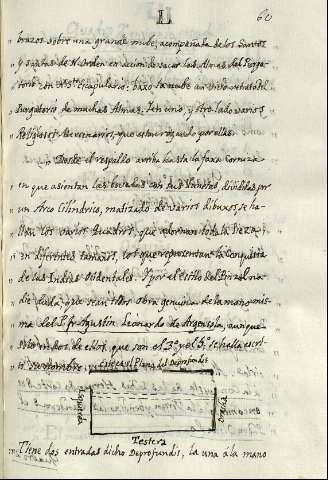 60
brazos sobre una grande nube, acompañada de los Santos
„ y Santas de N. Orden en accion de sacar las Almas del Purga-
„ torio con N. S.to Escapulario: baxo la nube un vivo retrato del
„ Purgatorio de muchas Almas. Ien uno, y otro lado varios
„ Religiosos Mercenarios, que estan rogando por ellas.
„ Desde el respaldo arriba hasta la faxa Corniza
„ en que asientan las bovedas con sus lunetos, divididas por
„ un Arco Cilindrico, matizado de varios dibuxos, se ha-
„ llan los varios Quadros, que adornan toda la Pieza
„ en diferentes tamaños, los que representan la Conquista
„ de las Indias Ocidentales. Y por el estilo del Pinzel na-
„ die duda, que sean todos obra genuina de la mano mis-
„ ma del P. fr. Agustin Leonardo de Argensola, aunque
„ solo en dos de ellos, que son el 3.º y el 5.º se halla escri-
„ to su nombre. Este es el Plano del Deprofundis
Izquierda
Drecha
Testera
„ Tiene dos entradas dicho Deprofundis, la una á la mano